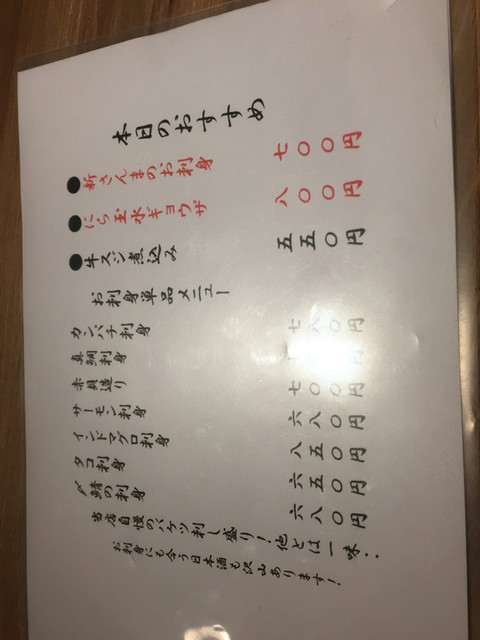 本日のおすすめ
●新さんまのお刺身 七〇〇円
●にら玉水ギョウザ 八〇〇円
●牛スジ煮込み 五五〇円
お刺身単品メニュー
カンパチ刺身 七八〇円
真鯛刺身 円
赤貝造り 七〇〇円
サーモン刺身 六八〇円
インドマグロ刺身 八五〇円
タコ刺身 六五〇円
〆鯖の刺身 六八〇円
当店自慢のバケツ刺し盛り!他とは一味‥
お刺身にも合う日本酒も沢山あります!